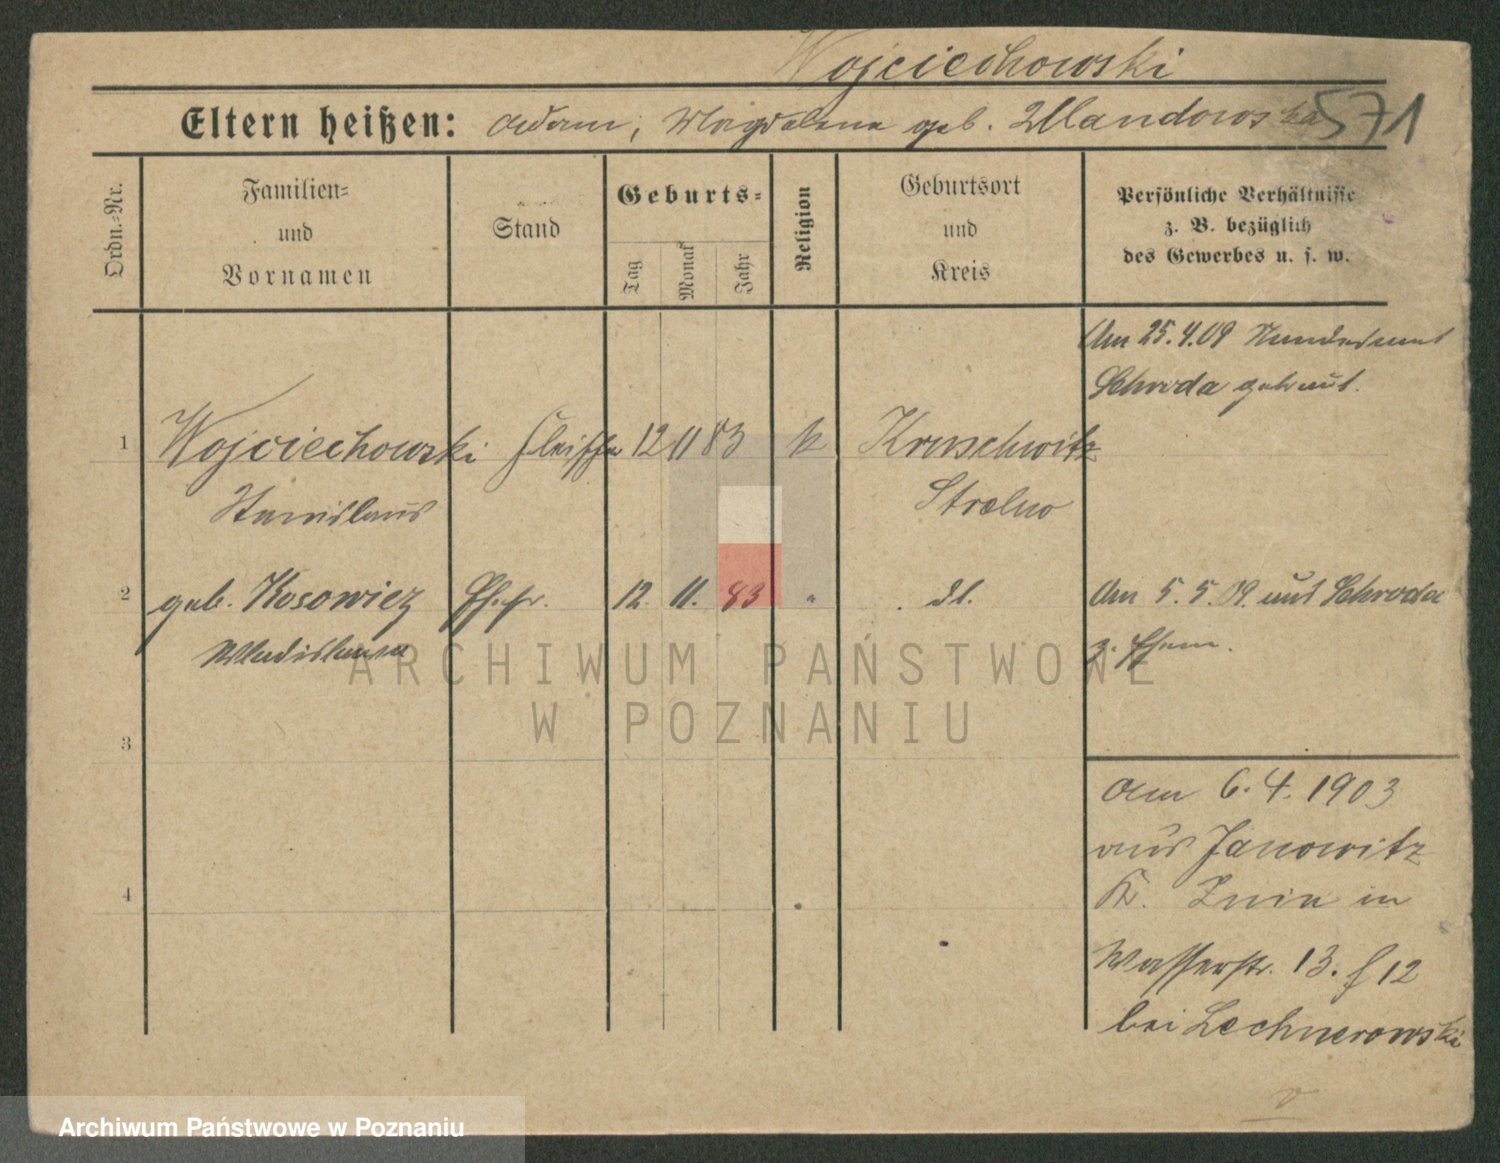 Wojciechowski
Eltern heißen: Adam, Magdalena geb. Mandowska 571
Ordn.-Nr.
Familien-
und
Vornamen
Stand
Geburts-
Tag
Monat
Jahr
Religion
Geburtsort
und
Kreis
Persönliche Verhältnisse
z. B. bezüglich
des Gewerbes u. s. w.
Am 25.4.09
Schroda getraut.
1 Wojciechowski Fleischer 12 11 83 k Kruschwitz
Stanislaus Strelno
2 geb. Kosowicz Ehefr. 12. 11. 83 " dt. Am 5. 5. 09. aus Schroda
Wladislawa z. Ehem.
3
Am 6. 4. 1903
aus Janowitz
K. Znin in
4
Wasserstr. 13. H 12
bei Lechnerowski
ARCHIWUM PAŃSTWOWE
W POZNANIU
Archiwum Państwowe w Poznaniu